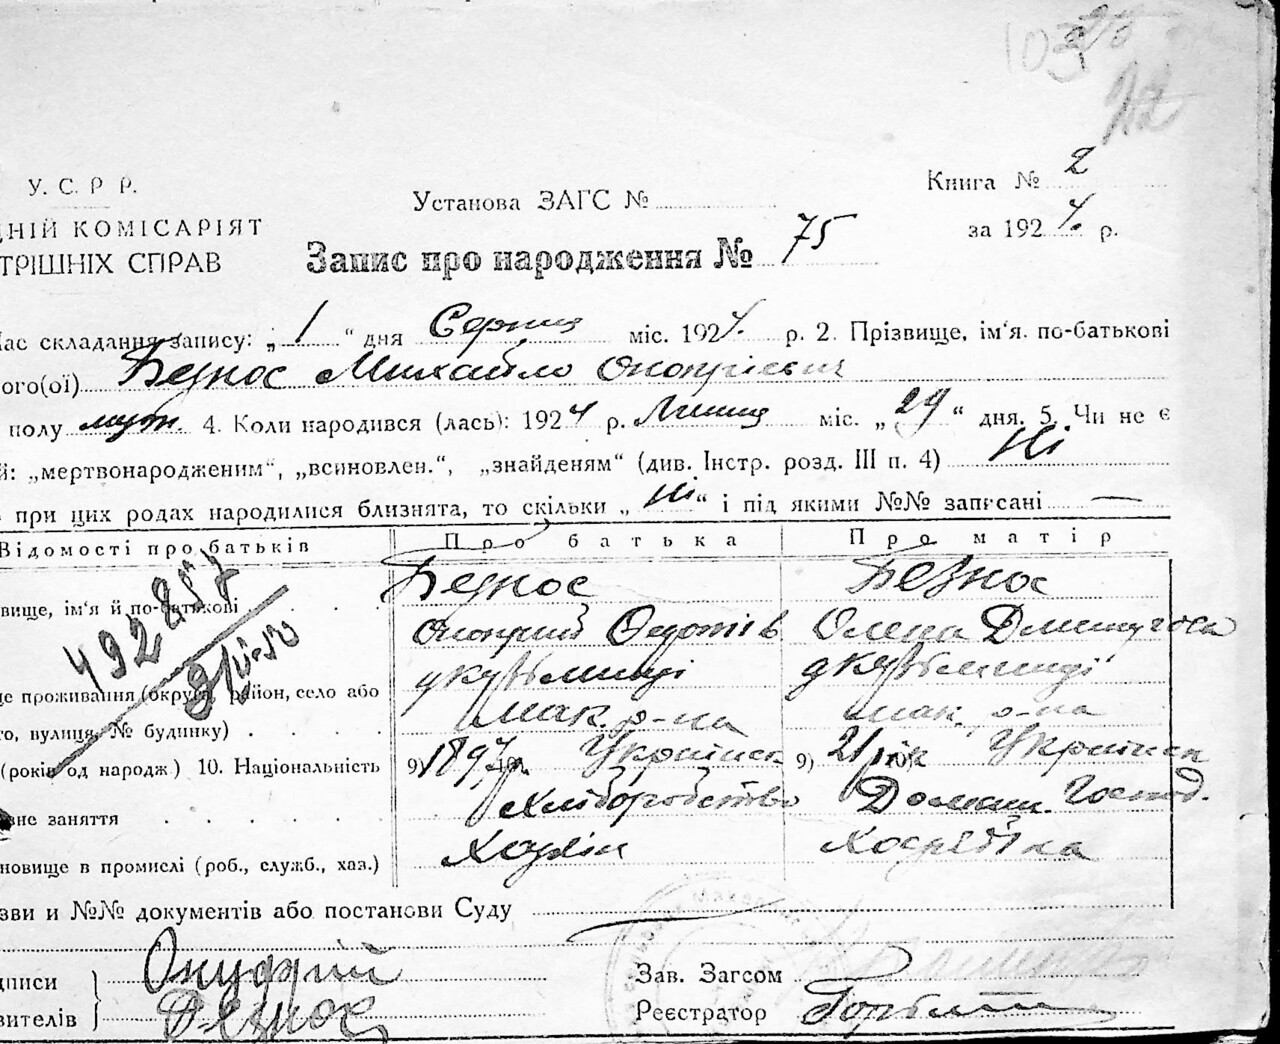 103
У. С. Р Р.
Установа ЗАГС №
Книга № 2
ДНІЙ КОМІСАРІЯТ
за 1924. р.
ТРІШНІХ СПРАВ
Запис про народження № 75
Час складання запису: „ 1 “ дня Серпня міс. 1924. р. 2. Прізвище, ім'я. по-батькові
ого(ої) Безнос Михайло Онопрієвич
полу муж. 4. Коли народився (лась): 1924 р. Липня міс. „ 29 “ дня. 5. Чи не є
й: „мертвонародженим“, „всиновлен.“, „знайденям“ (див. Інстр. розд. III п. 4) Ні
при цих родах народилися близнята, то скільки „ Ні “ і під якими №№ записані —
Відомості про батьків Про батька Про матір
Безнос Безнос
звище, ім'я й по-батькові
Онопрій Федотів Олена Дмитрова
це проживання (округа, район, село або
мак. р-на мак. р-на
то, вулиця, № будинку)
(років од народж) 10. Національність 9) 1897 10) Українец 9) 21 рік 10) Українка
Хліборобство Домашн. Господ.
вне заняття
Хазяїн Хазяйка
новище в промислі (роб., служб., хаз.)
зви и №№ документів або постанови Суду
дписи Онуфрій Зав. Загсом
вителів Безнос Реєстратор